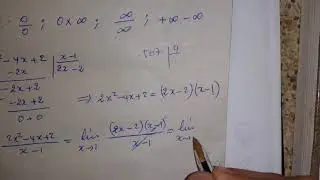 : 0/0 ; 0×∞ ; ∞/∞ ; +∞-∞
-4x+2 | x-1
-2x | 2x-2
-2x+2
0+0
507 | 9
⇒ 2x²-4x+2 = (2x-2)(x-1)
2x²-4x+2 / x-1 = lim x→1 (2x-2)(x-1) / x-1 = lim x→1